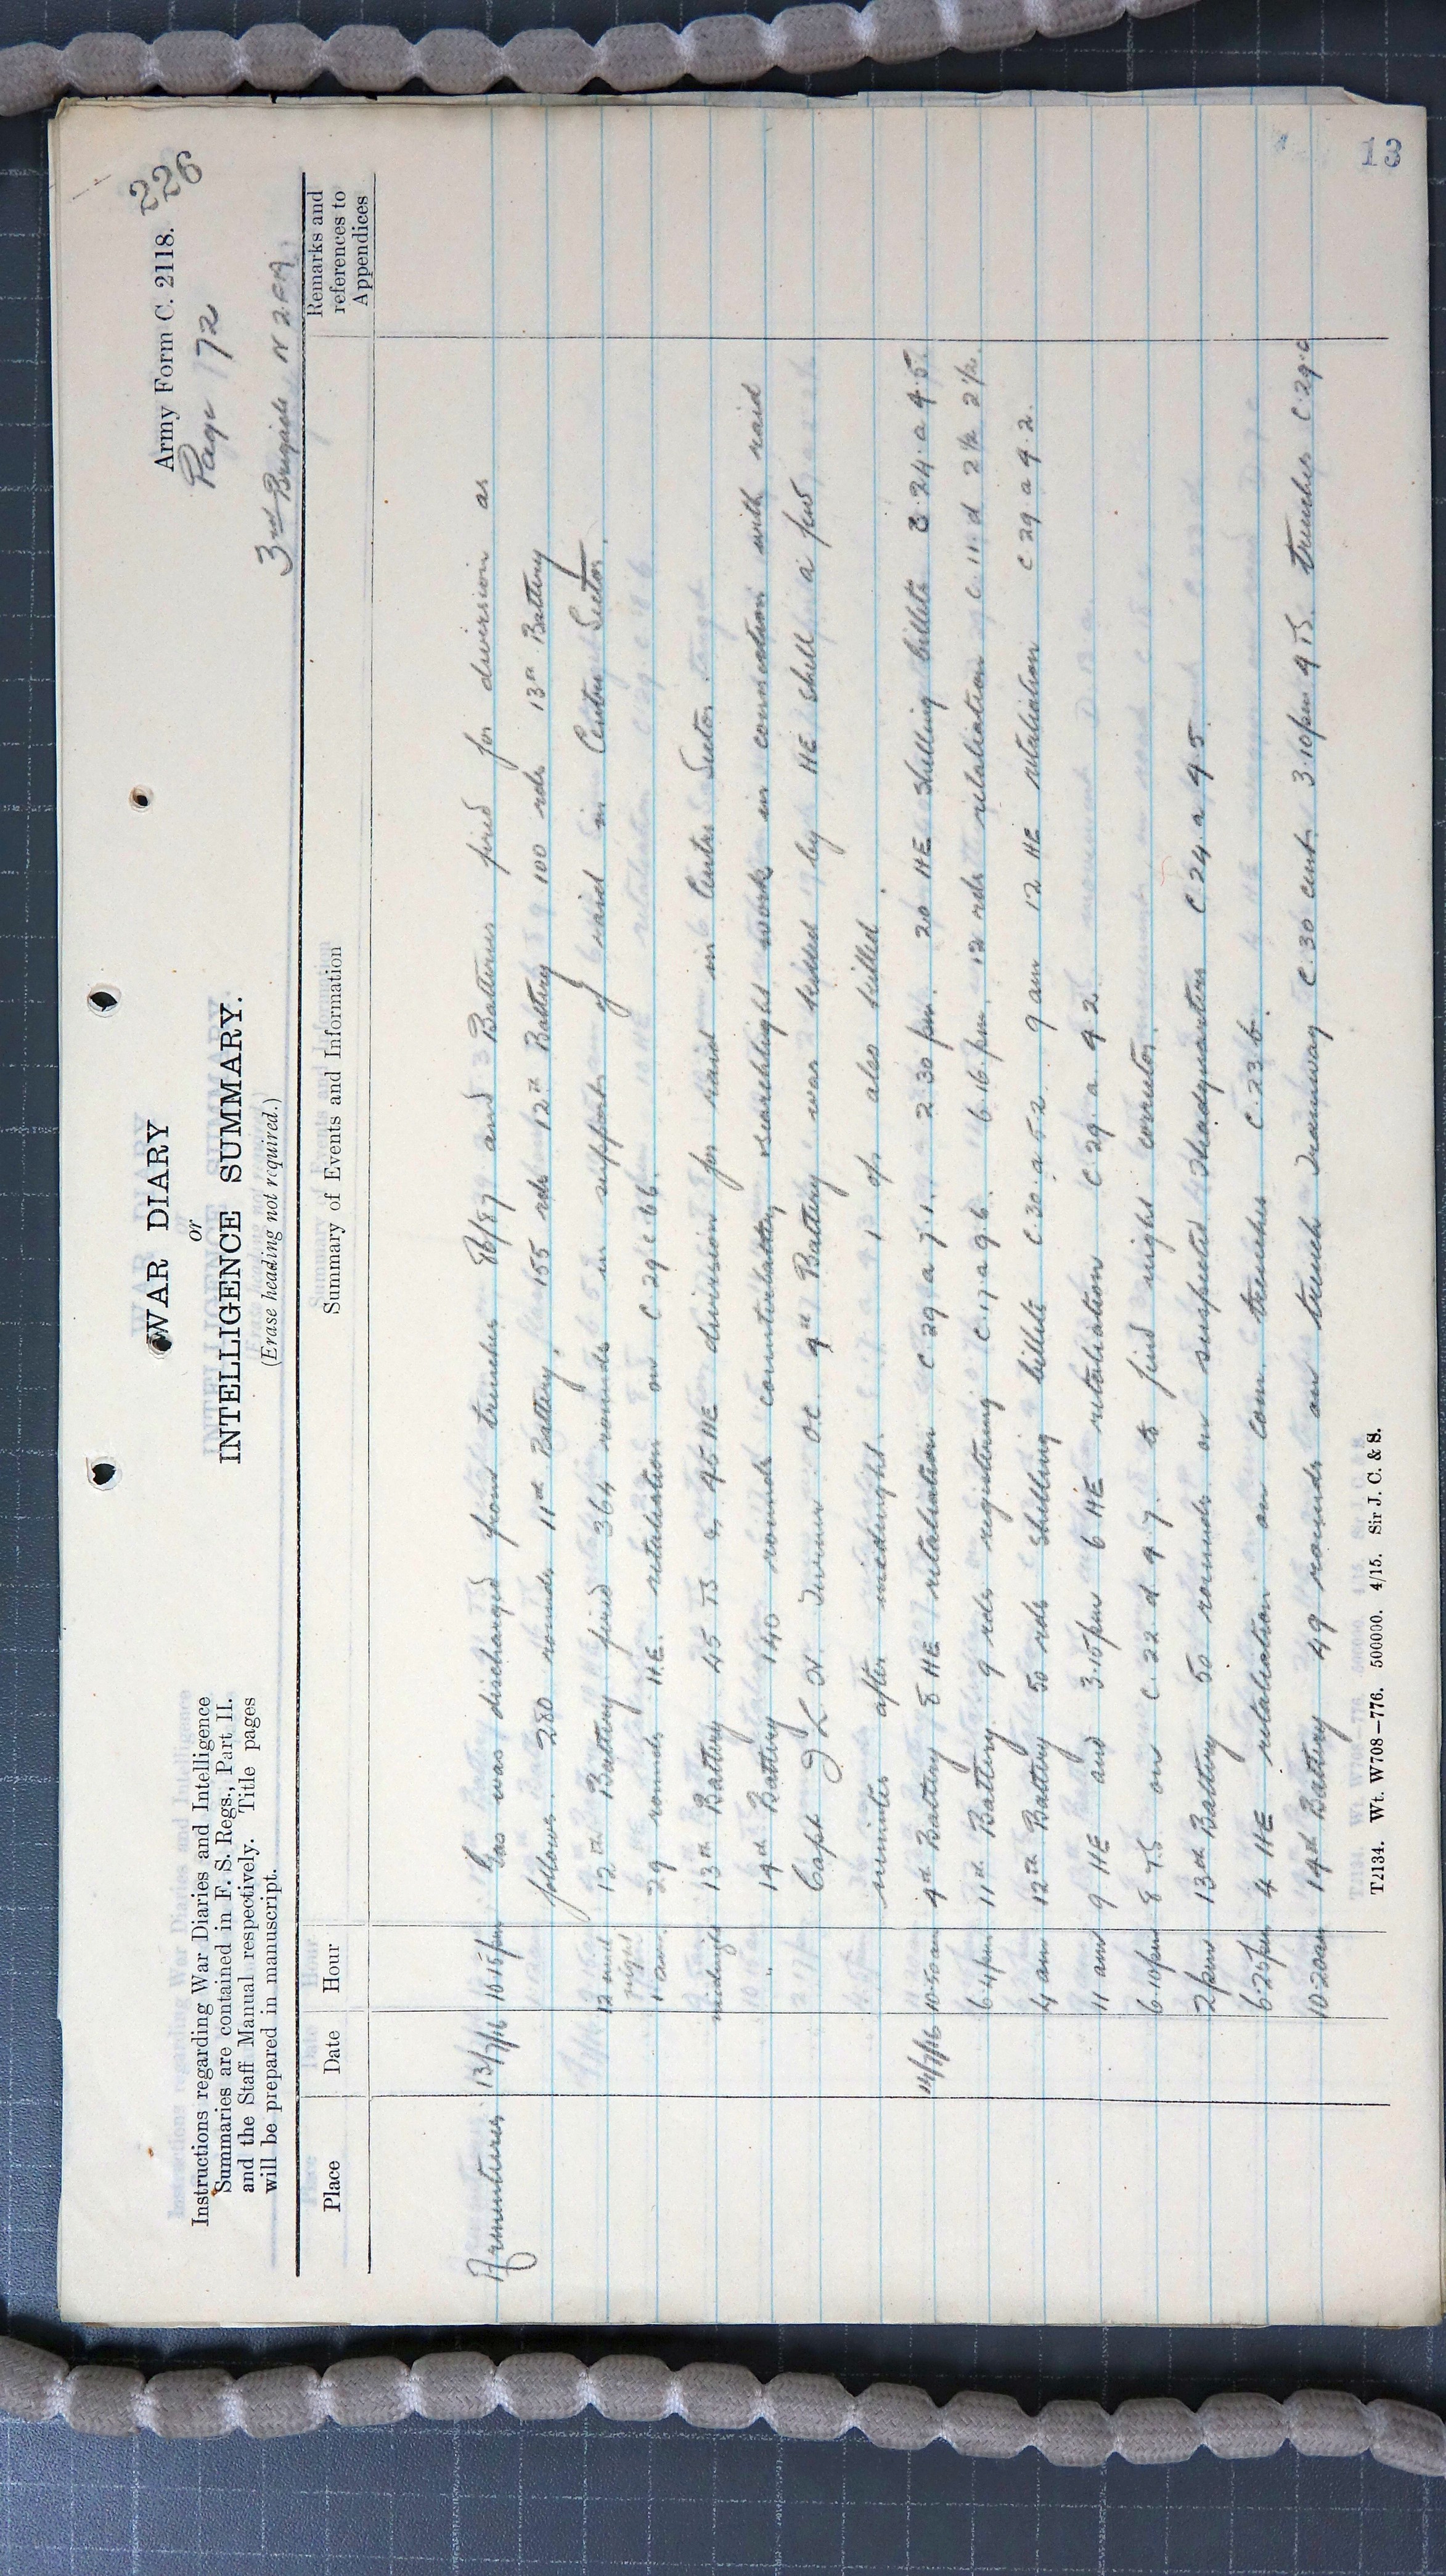 Army Form C. 2118.
226
Page 172
WAR DIARY
or
INTELLIGENCE SUMMARY.
(Erase heading not required.)
3rd Brigade N Z F A
Instructions regarding War Diaries and Intelligence
Summaries are contained in F. S. Regs., Part II.
and the Staff Manual respectively. Title pages
will be prepared in manuscript.
Place Date Hour Summary of Events and Information Remarks and references to Appendices
Armentieres 13/7/16 10 15 pm Gas was discharged from trenches 86/87 and Batteries fired for diversion as
follows. 280 rounds 11th Battery. 155 rds 12th Battery 100 rds 13th Battery
12 mid night 12th Battery fired 364 rounds in support of raid in Centre Sector.
1 am 29 rounds H.E. retaliation on C 29 c 6 6.
midnight 13th Battery 45 TS & 45 HE diversion for raid in Centre Sector
" 14th Battery 140 rounds counterbattery searchlight work in connection with raid
Capt OC 9th Battery was killed by HE shell a few
minutes after midnight. 1 also killed.
14/7/16 10 50 am 9th Battery 8 HE retaliation C 29 a 7.1. 2 30 pm. 20 HE shelling billets 24. a 4.5.
6.4 pm 11th Battery 9 rds registering C.17 a 9 6. 6.16 pm. 12 rds retaliation C. 11. d 2½ 2½.
4 am 12th Battery 50 rds shelling billets C. 30. a 5 2. 9 am 12 HE retaliation C 29 a 9. 2.
11 am 9 HE and 3.15 pm 6 HE retaliation C 29. a. 9 2
6.10 pm 8 TS on C. 22. d 9 7. to find night corrector.
2 pm 13th Battery 50 rounds on suspected Headquarters C 24 a 4 5.
6.25 pm 4 HE retaliation on com. trenches C. 23 b.
10 20 am 14th Battery 49 rounds on trench tramway C. 30 cent. 3.10 pm 9 TS. trenches C. 29. c
T2134. Wt. W708—776. 500000. 4/15. Sir J. C. & S.
13